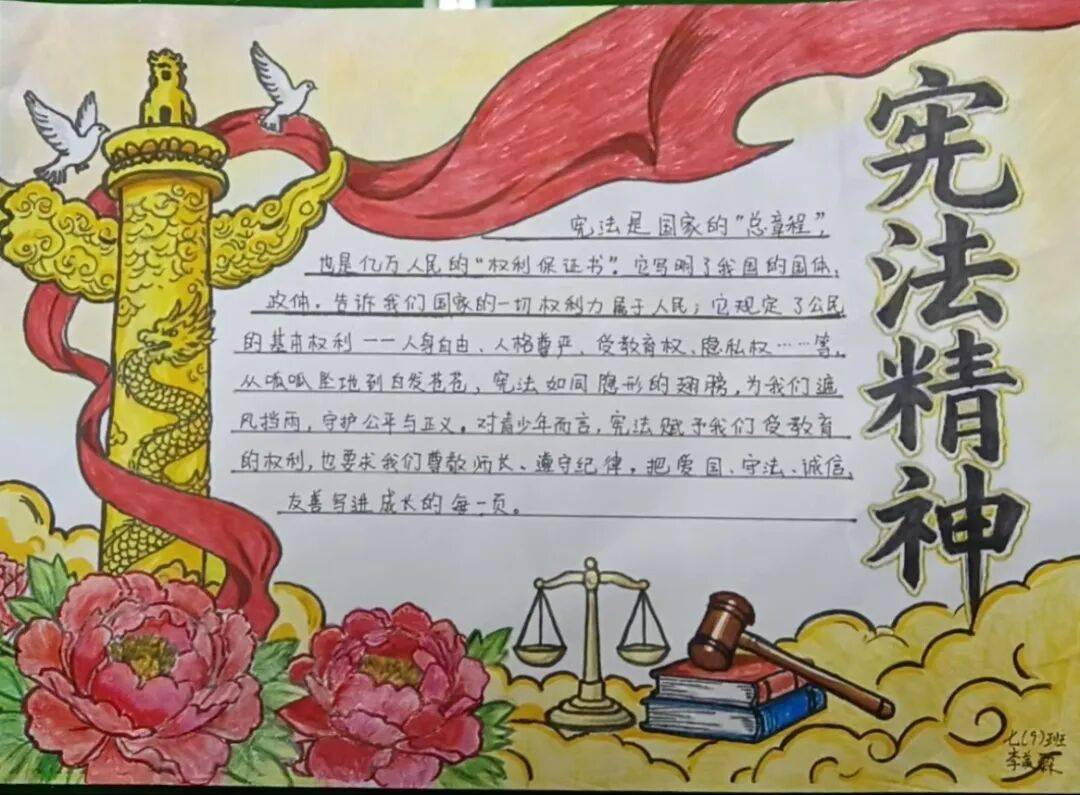 宪法精神
宪法是国家的“总章程”，
也是亿万人民的“权利保证书”。它写明了我国的国体、
政体。告诉我们国家的一切权利力属于人民；它规定了公民
的基本权利——人身自由、人格尊严、受教育权、隐私权……等。
从呱呱坠地到白发苍苍，宪法如同隐形的翅膀，为我们遮
风挡雨，守护公平与正义。对青少年而言，宪法赋予我们受教育
的权利，也要求我们尊敬师长、遵守纪律。把爱国、守法、诚信、
友善写进成长的每一页。
七(9)班
李